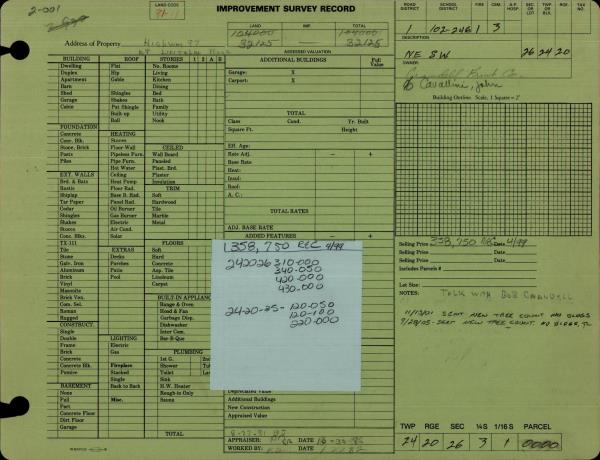 2-001
IMPROVEMENT SURVEY RECORD
LAND CODE
LAND
IMP.
TOTAL
104000
104000
32125
32125
Address of Property
Highway 97
ROAD DISTRICT
SCHOOL DISTRICT
FIRE
CEM.
HOSP.
SEC. OR LOT
TWP. OR BLK.
RGE.
TAX NO.
1 102-246 1 3
DESCRIPTION
NE SW 26 24 20
OWNER
Crandell Fruit Co.
% Cavallini, John
Building Outline. Scale, 1 Square =
ASSESSED VALUATION
BUILDING
Dwelling
Duplex
Apartment
Barn
Shed
Garage
Cabin
ROOF
Flat
Hip
Gable
Shingles
Shakes
Built up
Roll
STORIES 1 2 A B
No. Rooms
Living
Kitchen
Dining
Bed
Bath
Family
Utility
Nook
ADDITIONAL BUILDINGS
Full Value
Garage: X
Carport: X
TOTAL
Class
Cond.
Yr. Built
Square Ft.
Height
Eff. Age:
Rate Adj. − +
Base Rate
Heat:
Insul:
Roof:
A. C.:
TOTAL RATES
ADJ. BASE RATE
ADDED FEATURES − +
FOUNDATION
Concrete
Conc. Blk.
Stone, Brick
Posts
Piles
HEATING
Stoves
Floor-Wall
Pipeless Furn.
Pipe Furn.
Hot Water
Ceiling
Heat Pump
Floor Rad.
Base B. Rad.
Panel Rad.
Oil Burner
Gas Burner
Electric
Air Cond.
Solar
CEILED
Wall Board
Paneled
Plast. Brd.
Plaster
Insulation
TRIM
Soft
Hardwood
Tile
Marble
Metal
EXT. WALLS
Brd. & Bats
Rustic
Shiplap
Tar Paper
Cedar
Shingles
Shakes
Stucco
Conc. Blks.
TX-111
Tile
Stone
Galv. Iron
Aluminum
Brick
Vinyl
Masonite
Brick Ven.
Com. Sel.
Roman
Rugged
EXTRAS
Decks
Porches
Patio
Pool
FLOORS
Soft
Hard
Concrete
Asp. Tile
Linoleum
Carpet
BUILT-IN APPLIANC
Range & Oven
Hood & Fan
Garbage Disp.
Dishwasher
Inter Com.
Bar-B-Que
CONSTRUCT.
Single
Double
Frame
Brick
Concrete
Concrete Blk.
Pumice
Single
LIGHTING
Electric
Gas
Fireplace
Stacked
Single
Back to Back
Misc.
PLUMBING
1st G.
2nd
Shower
Toilet
Sink
H.W. Heater
Rough-in Only
Sauna
BASEMENT
None
Full
Part
Concrete Floor
Dirt Floor
Garage
TOTAL
1,358,750 REC 4/99
242026 310-000
340-050
420-000
430-000
24-20-25- 120-050
120-100
220-000
Depreciated Value
Additional Buildings
New Construction
Appraised Value
APPRAISER:
DATE
WORKED BY:
Selling Price 1,358,750 REC 4/99
Selling Price
Selling Price
Includes Parcels #
Lot Size:
NOTES: TALK WITH BOB CRANDELL
11/13/01 SENT NEW TREE COUNT NO BLDGS
9/28/05 - SENT NEW TREE COUNT. NO BLDGS,
TWP RGE SEC ¼S 1/16S PARCEL
24 20 26 3 1 0000